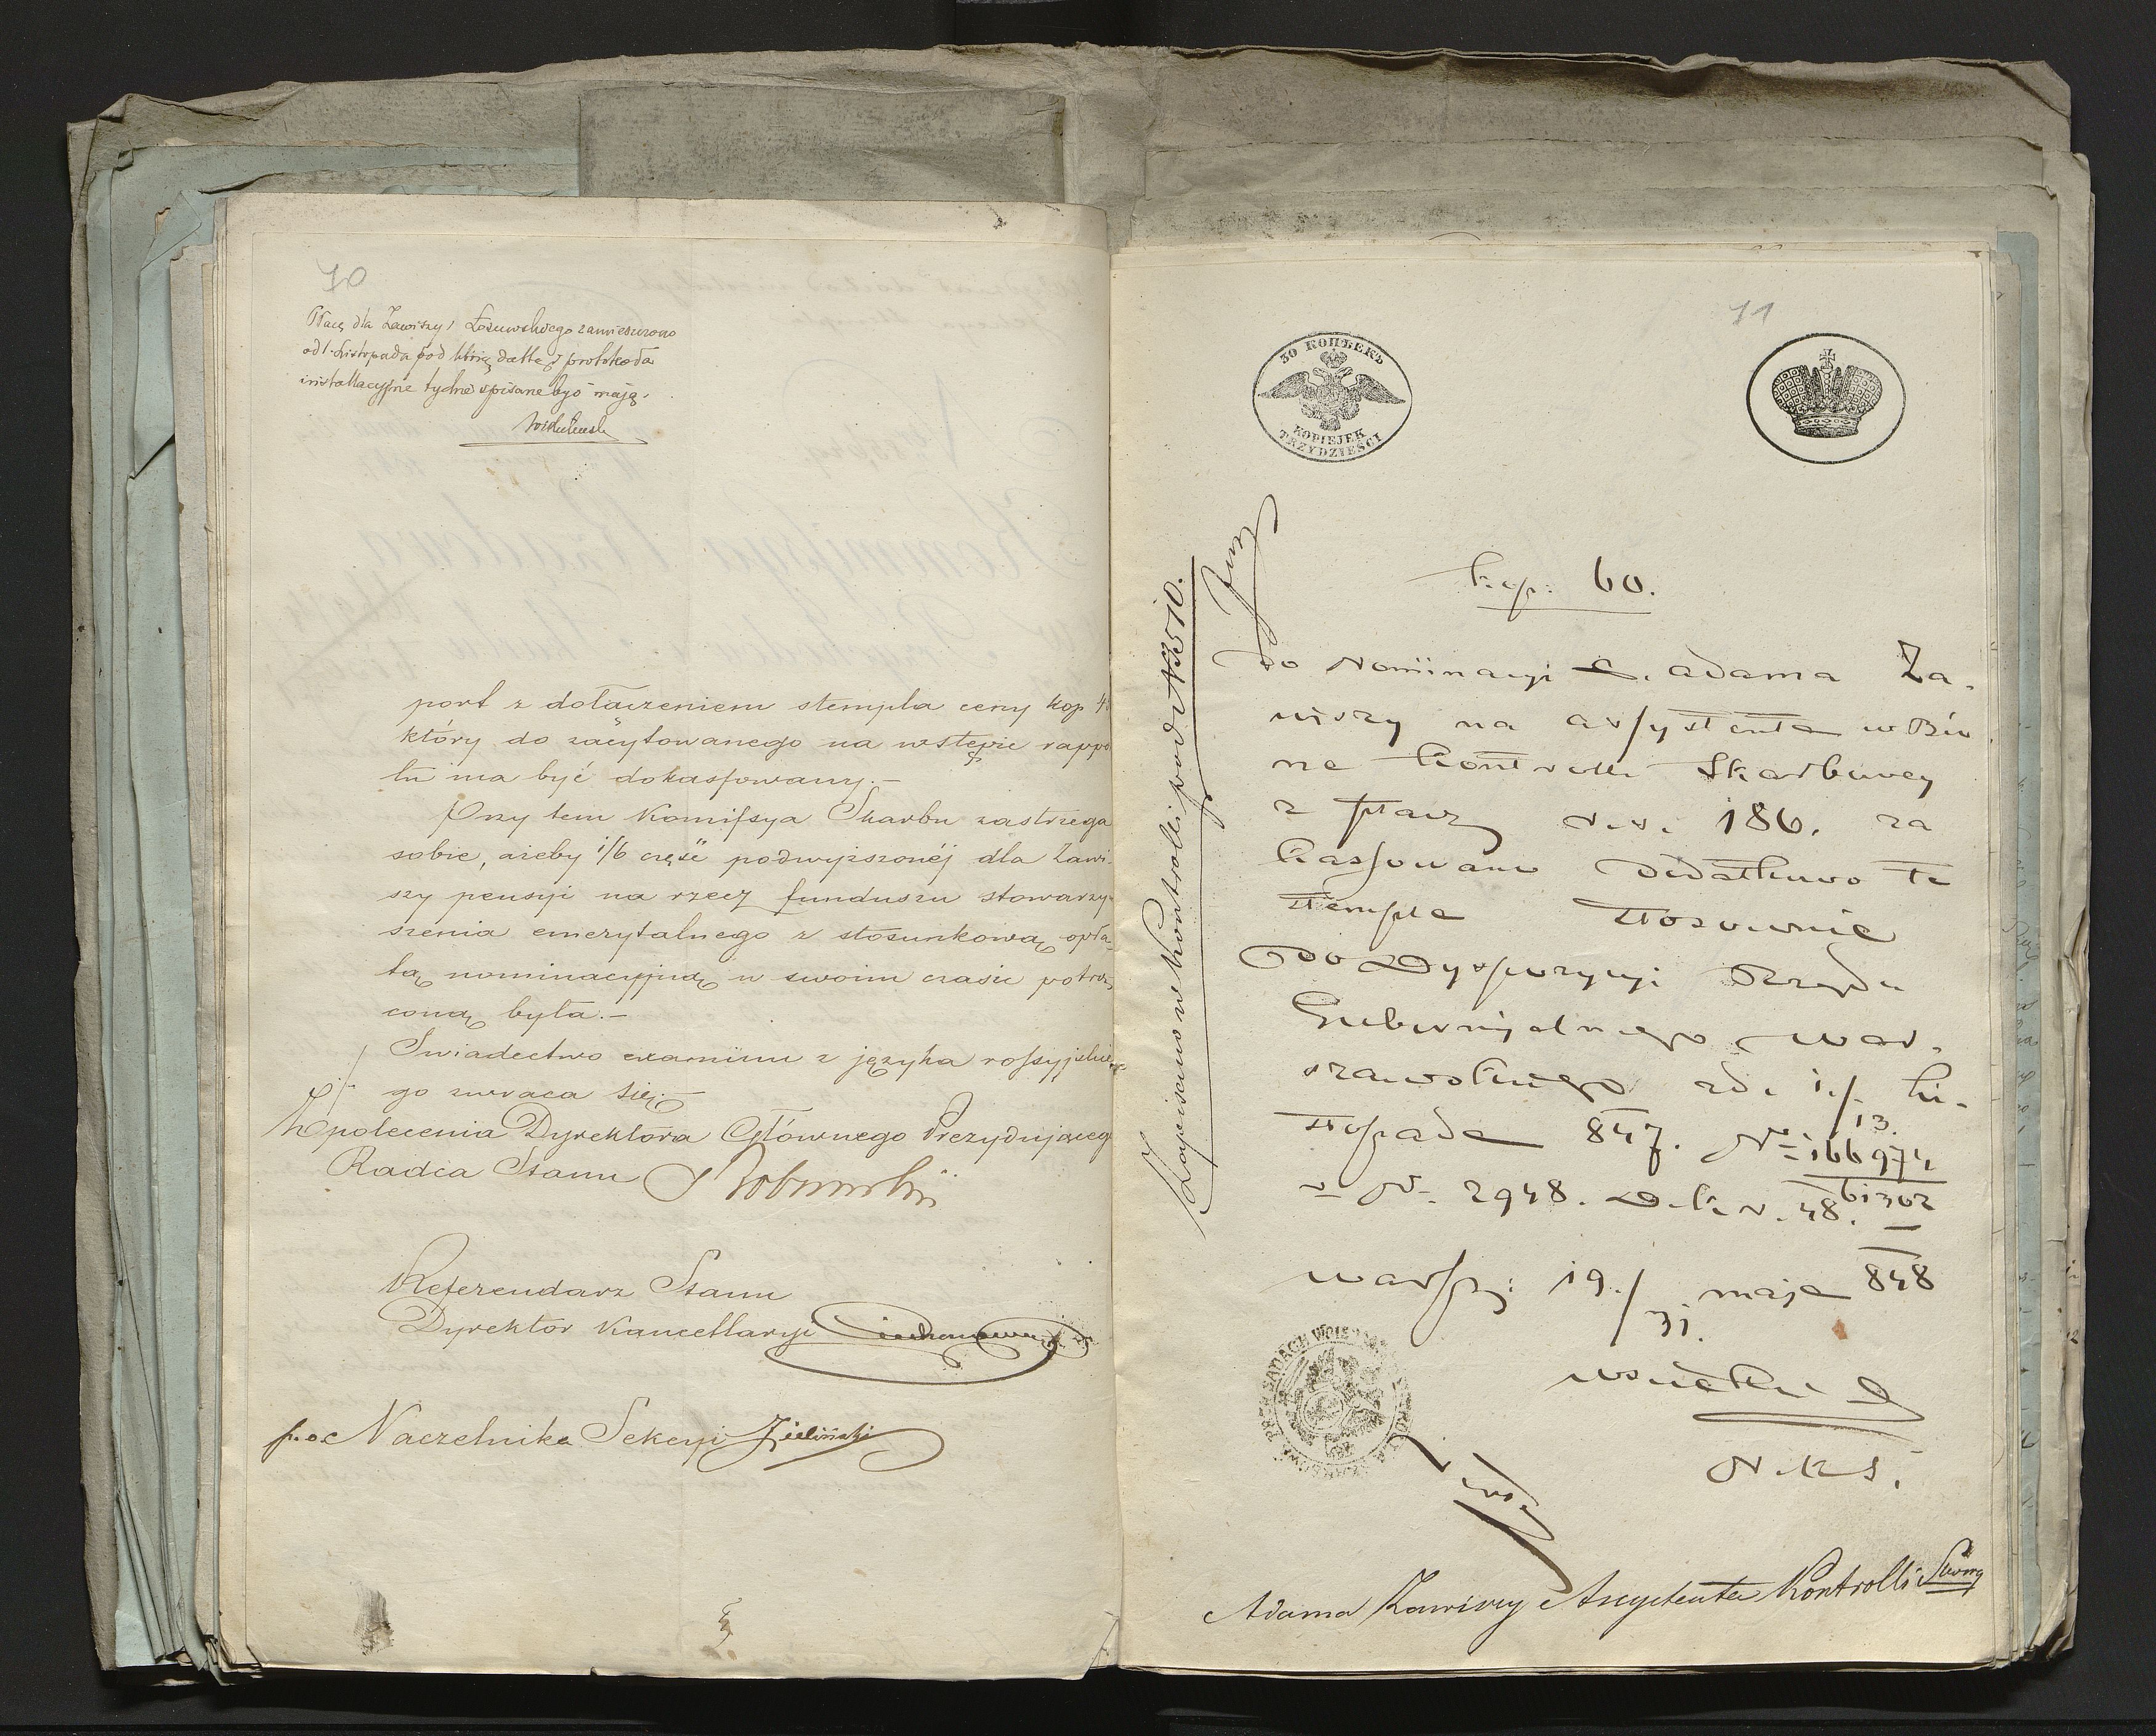 70
Płacę dla Zawiszy i Łosowskiego zamieszczono
od 1. Listopada pod którą dattą i protokoła
installacyjne tychże spisane być mają.
port z dołączeniem stempla ceny kop
który do zacytowanego na wstępie rappo
tu ma być dokassowany.-
Przy tem Kommissya Skarbu zastrzega
sobie, ażeby 1/6 część podwyższonéj dla Zawi-
szy pensyi na rzecz funduszu stowarzy-
szenia emerytalnego z stosunkową opła-
tą nominacyjną w swoim czasie potrą
coną była.-
Świadectwo examinu z języka rossyjskie
go zwraca się.
Z polecenia Dyrektora Głównego Prezydującego
Radca Stanu
Referendarz Stanu
Dyrektor Kancellaryi
p.o. Naczelnika Sekcyi Zieliński
71
30 КОПѢЕКЪ
KOPIEJEK
TRZYDZIEŚCI
Zapisano w Kontrolli pod N 3510.
kop: 60.
do Nominacyi Adama Za-
wiszy na assystenta w Biu
rze Kontrolli Skarbowey
z płacą r.s. 186. za
kassowano dodatkowo te
stemple stosownie
do Dyspozycyi Rządu
Gubernijalnego War-
szawskiego zd. 1/13. Li-
stopada 847. N 166974
61302
N. 2948. D.K. r. 48.
Warsz: 19/31. maja 848
N.K.S.
Adama Zawiszy Assystenta Kontrolli Skarbowey